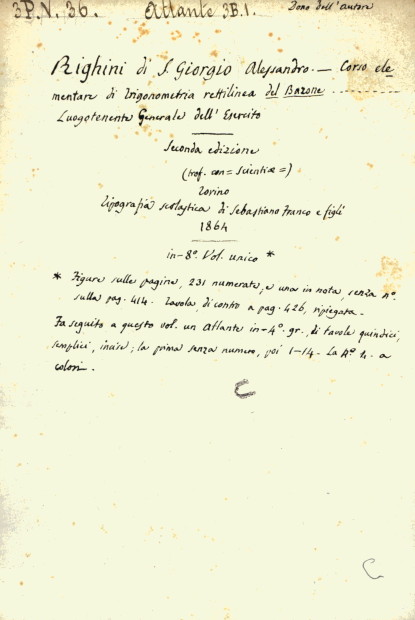 3P.V. 36. Atlante 3B.1. Dono dell'autore
Righini di S. Giorgio Alessandro. — Corso ele
mentare di trigonometria rettilinea del Barone ..........
Luogotenente Generale dell' Esercito
Seconda edizione
(trof. con = Scientiæ =)
Torino
Tipografia scolastica di Sebastiano Franco e figli
1864
in-8º. Vol. unico *
* Figure sulle pagine, 231 numerate, e una in nota, senza nº.
sulla pag. 414. Tavola, di contro a pag. 426, ripiegata.
Fa seguito a questo vol. un Atlante in-4º. gr., di tavole quindici,
semplici, incise; la prima senza numero, poi 1-14. La 4ª t. a
colori.